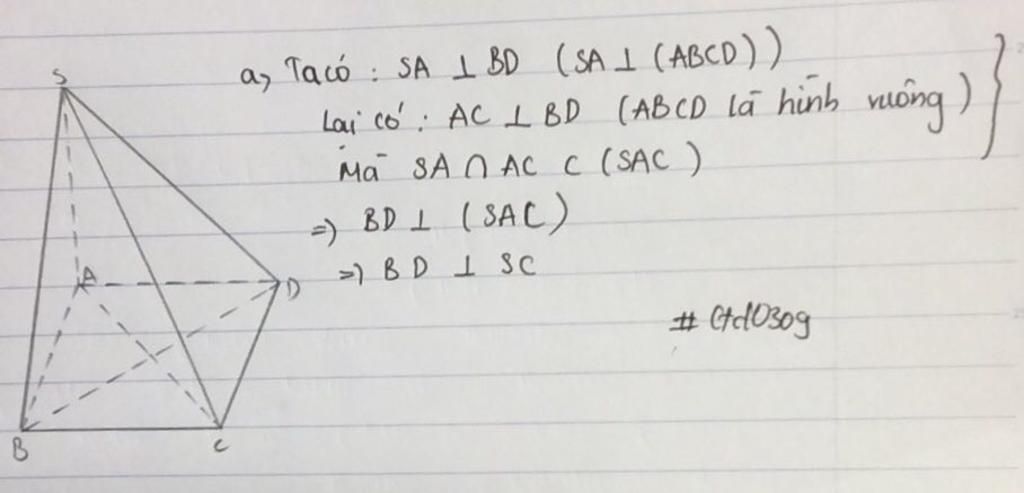 S
a, Ta có : SA ⊥ BD (SA ⊥ (ABCD))
Lại có : AC ⊥ BD (ABCD là hình vuông)
Mà SA ∩ AC ⊂ (SAC)
=> BD ⊥ (SAC)
=> BD ⊥ SC
A
D
B
C